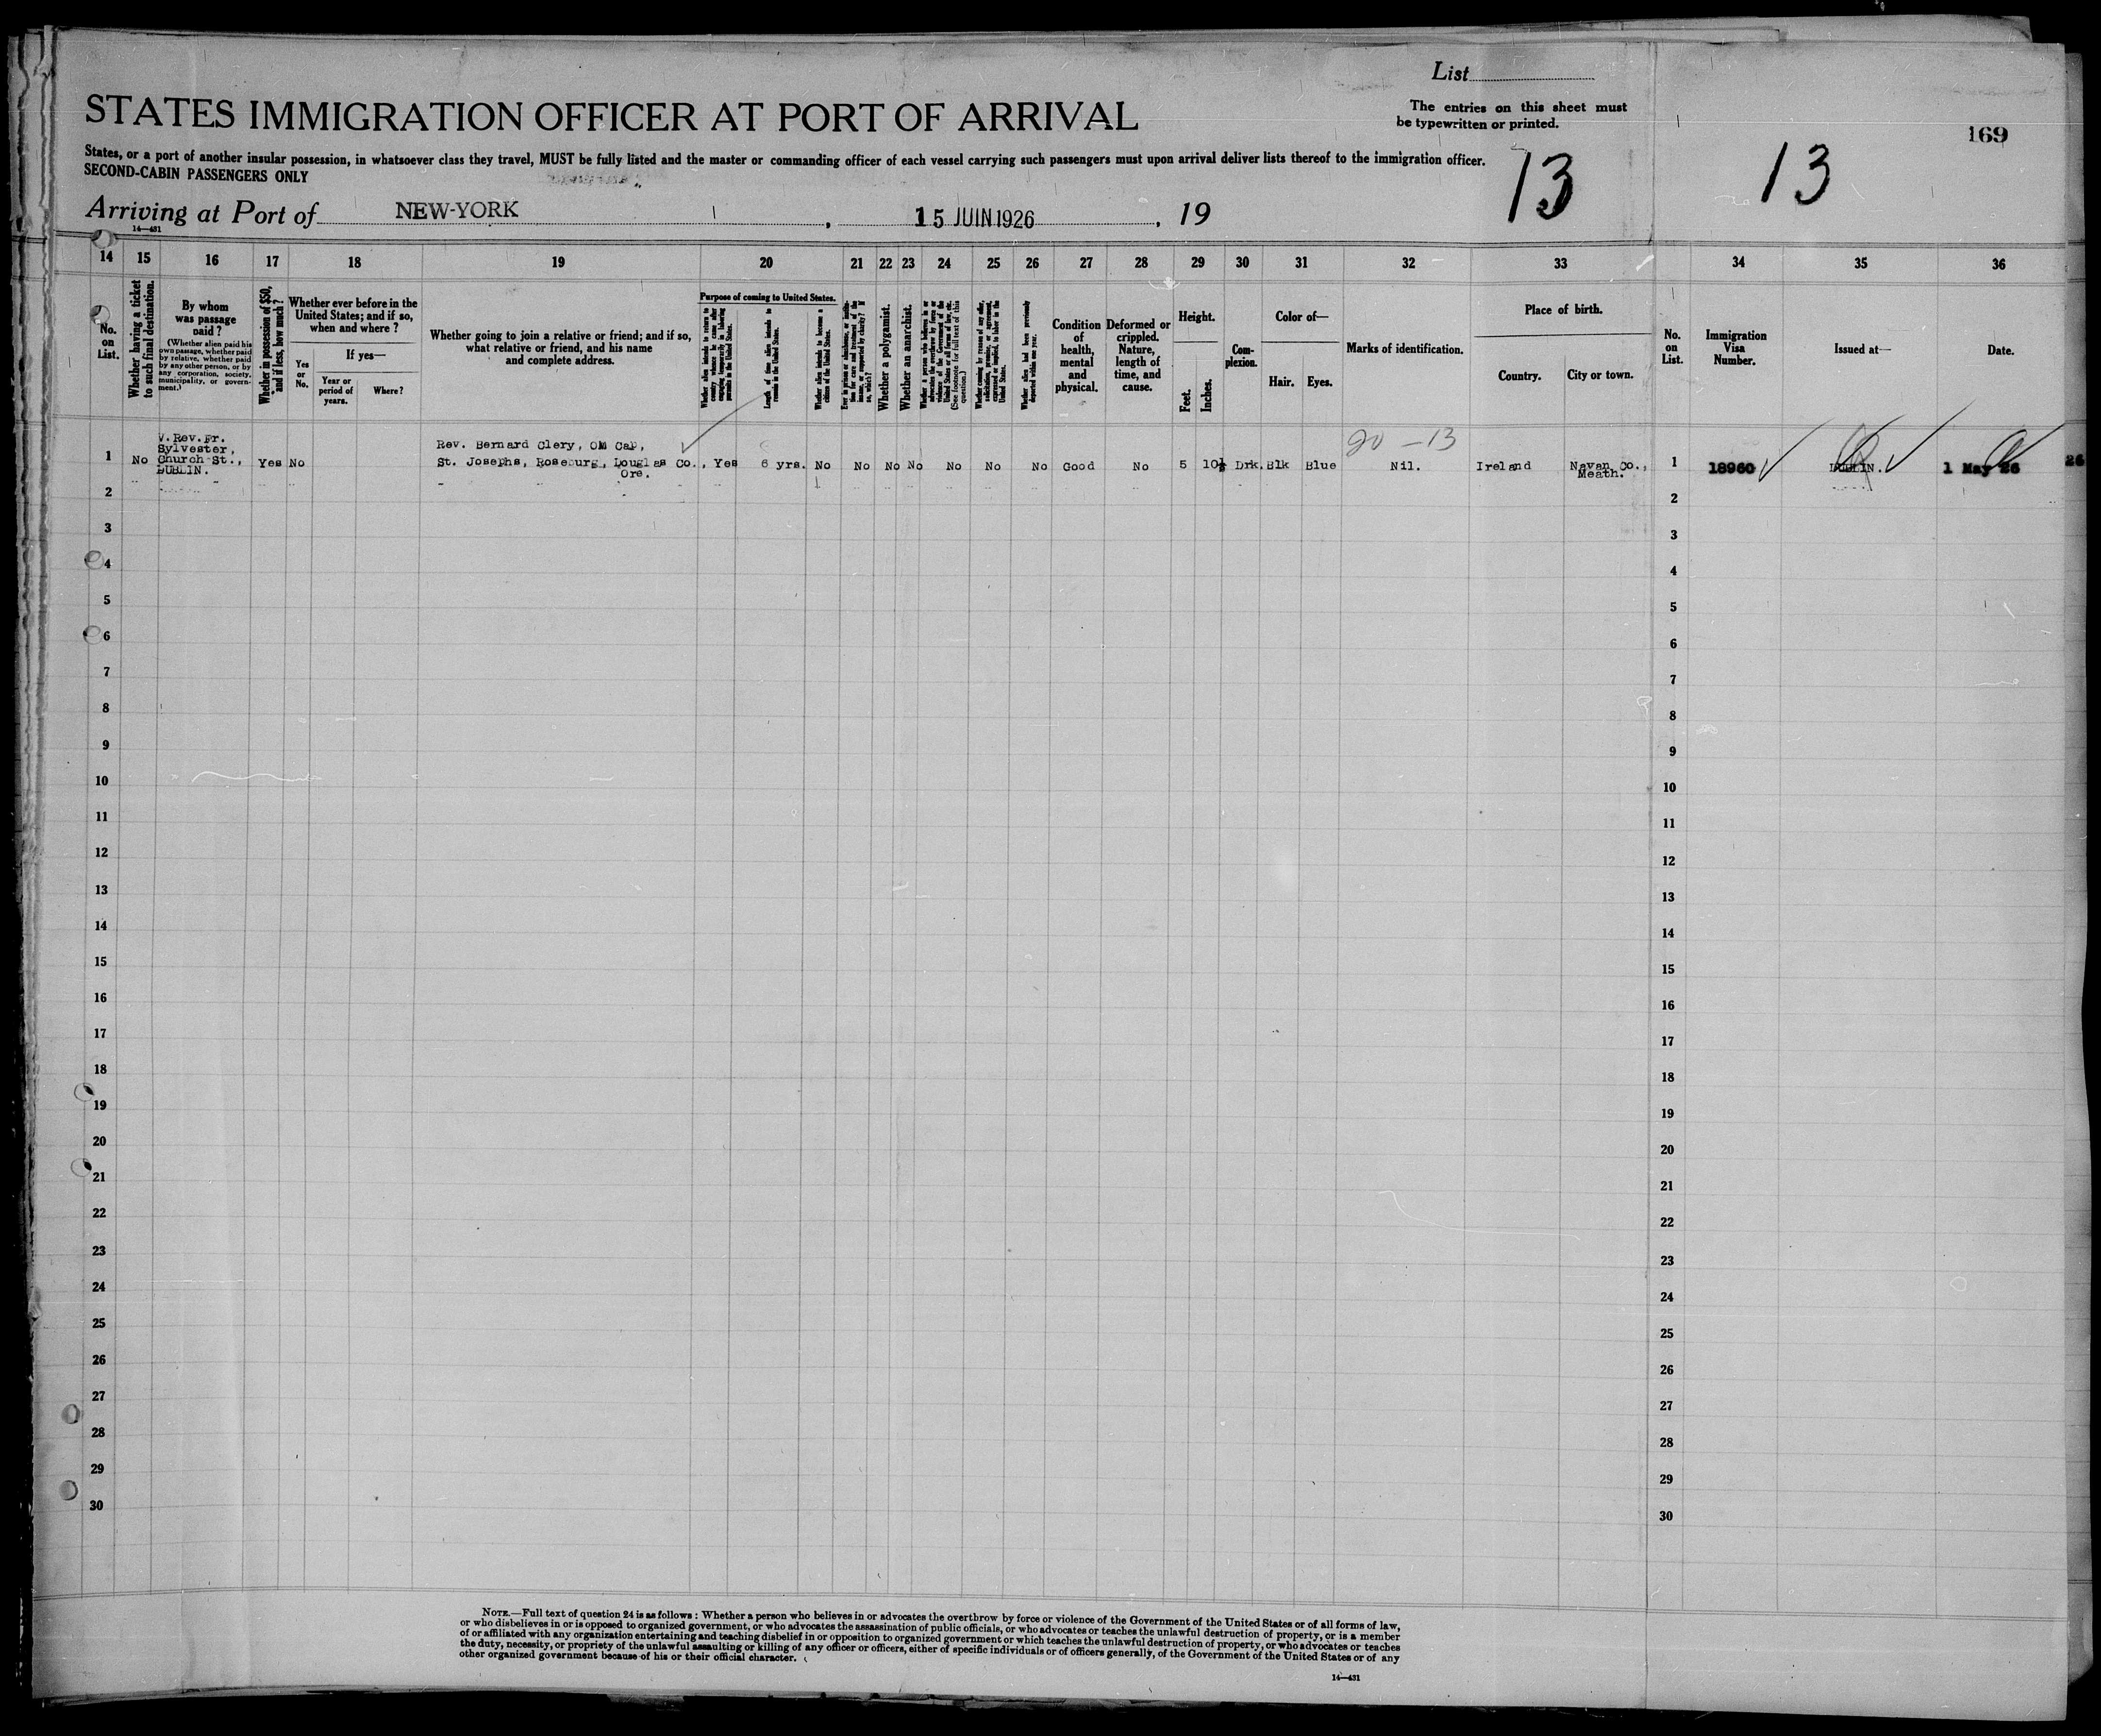 List
The entries on this sheet must
be typewritten or printed.
169
STATES IMMIGRATION OFFICER AT PORT OF ARRIVAL
States, or a port of another insular possession, in whatsoever class they travel, MUST be fully listed and the master or commanding officer of each vessel carrying such passengers must upon arrival deliver lists thereof to the immigration officer.
SECOND-CABIN PASSENGERS ONLY
13
13
Arriving at Port of NEW-YORK , 15 JUIN 1926 , 19
14—431
14 15 16 17 18 19 20 21 22 23 24 25 26 27 28 29 30 31 32 33 34 35 36
No. on List.
Whether having a ticket to such final destination.
By whom was passage paid?
(Whether alien paid his own passage, whether paid by relative, whether paid by any other person, or by any corporation, society, municipality, or government.)
Whether in possession of $50, and if less, how much?
Whether ever before in the United States; and if so, when and where?
Yes or No.
If yes—
Year or period of years.
Where?
Whether going to join a relative or friend; and if so, what relative or friend, and his name and complete address.
Purpose of coming to United States.
Length of time alien intends to remain in the United States.
Whether alien intends to become a citizen of the United States.
Whether a polygamist.
Whether an anarchist.
Condition of health, mental and physical.
Deformed or crippled. Nature, length of time, and cause.
Height.
Feet.
Inches.
Complexion.
Color of—
Hair.
Eyes.
Marks of identification.
Place of birth.
Country.
City or town.
No. on List.
Immigration Visa Number.
Issued at—
Date.
20 - 13
1 No V. Rev. Fr. Sylvester, Church St., DUBLIN. Yes No Rev. Bernard Clery, OM Cap, St. Josephs, Roseburg, Douglas Co., Ore. Yes 6 yrs. No No No No No No No Good No 5 10½ Drk. Blk Blue Nil. Ireland Navan Co., Meath. 1 18960 DUBLIN. 1 May 26 26
2 2
3 3
4 4
5 5
6 6
7 7
8 8
9 9
10 10
11 11
12 12
13 13
14 14
15 15
16 16
17 17
18 18
19 19
20 20
21 21
22 22
23 23
24 24
25 25
26 26
27 27
28 28
29 29
30 30
NOTE.—Full text of question 24 is as follows: Whether a person who believes in or advocates the overthrow by force or violence of the Government of the United States or of all forms of law,
or who disbelieves in or is opposed to organized government, or who advocates the assassination of public officials, or who advocates or teaches the unlawful destruction of property, or is a member
of or affiliated with any organization entertaining and teaching disbelief in or opposition to organized government or which teaches the unlawful destruction of property, or who advocates or teaches
the duty, necessity, or propriety of the unlawful assaulting or killing of any officer or officers, either of specific individuals or of officers generally, of the Government of the United States or of any
other organized government because of his or their official character.
14—431